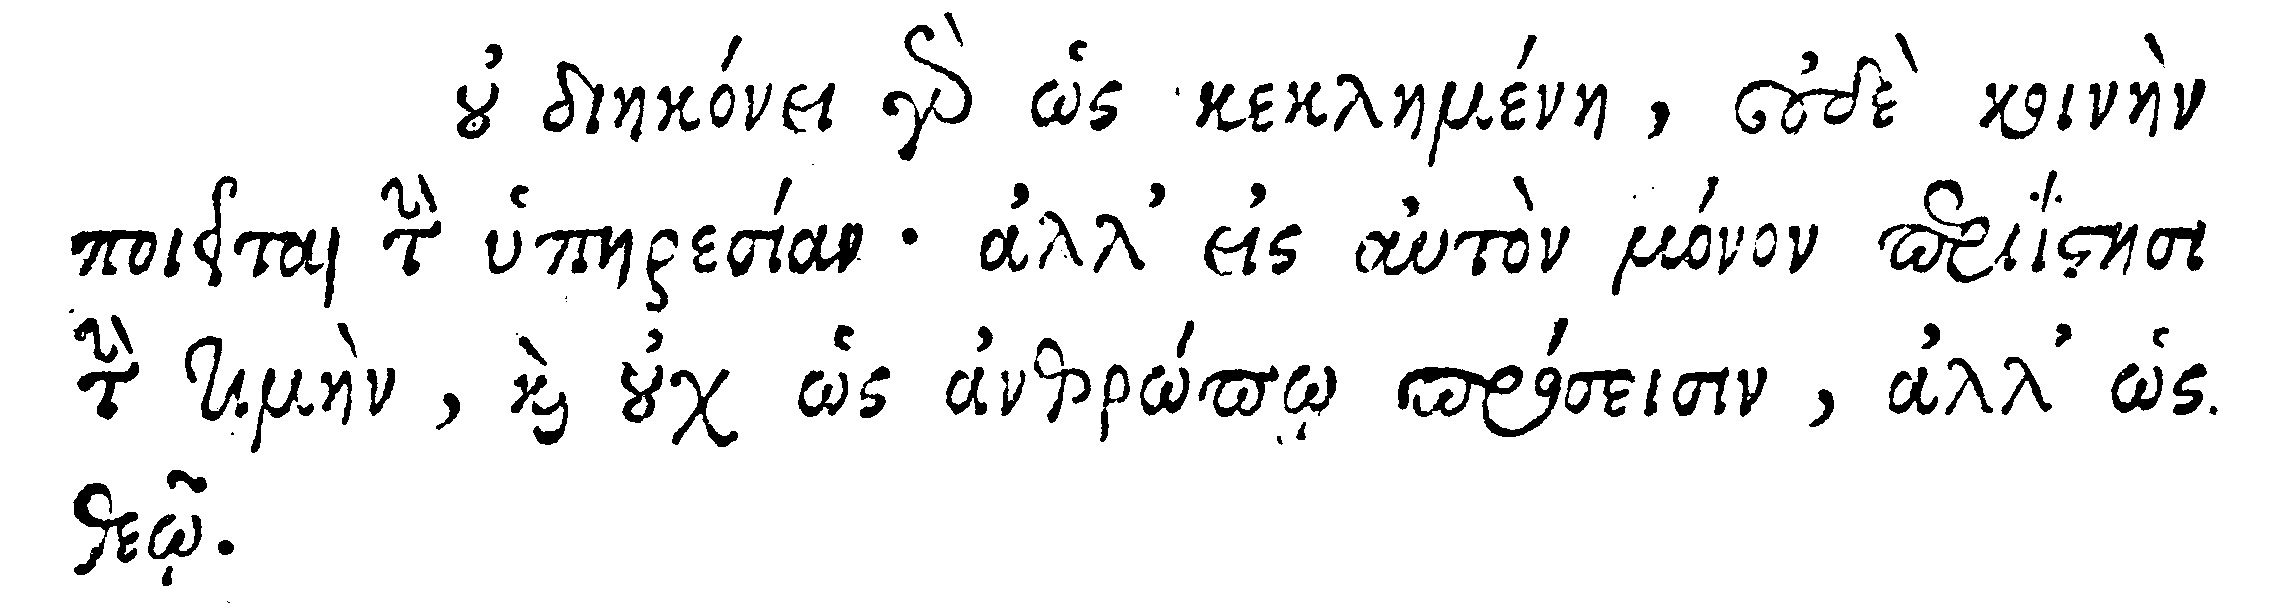 οὐ διηκόνει γὰρ ὡς κεκλημένη, οὐδὲ κοινὴν
ποιεῖται τὴν ὑπηρεσίαν· ἀλλ’ εἰς αὐτὸν μόνον περιΐστησι
τὴν τιμὴν, καὶ οὐχ ὡς ἀνθρώπῳ πρόσεισιν, ἀλλ’ ὡς
θεῷ.